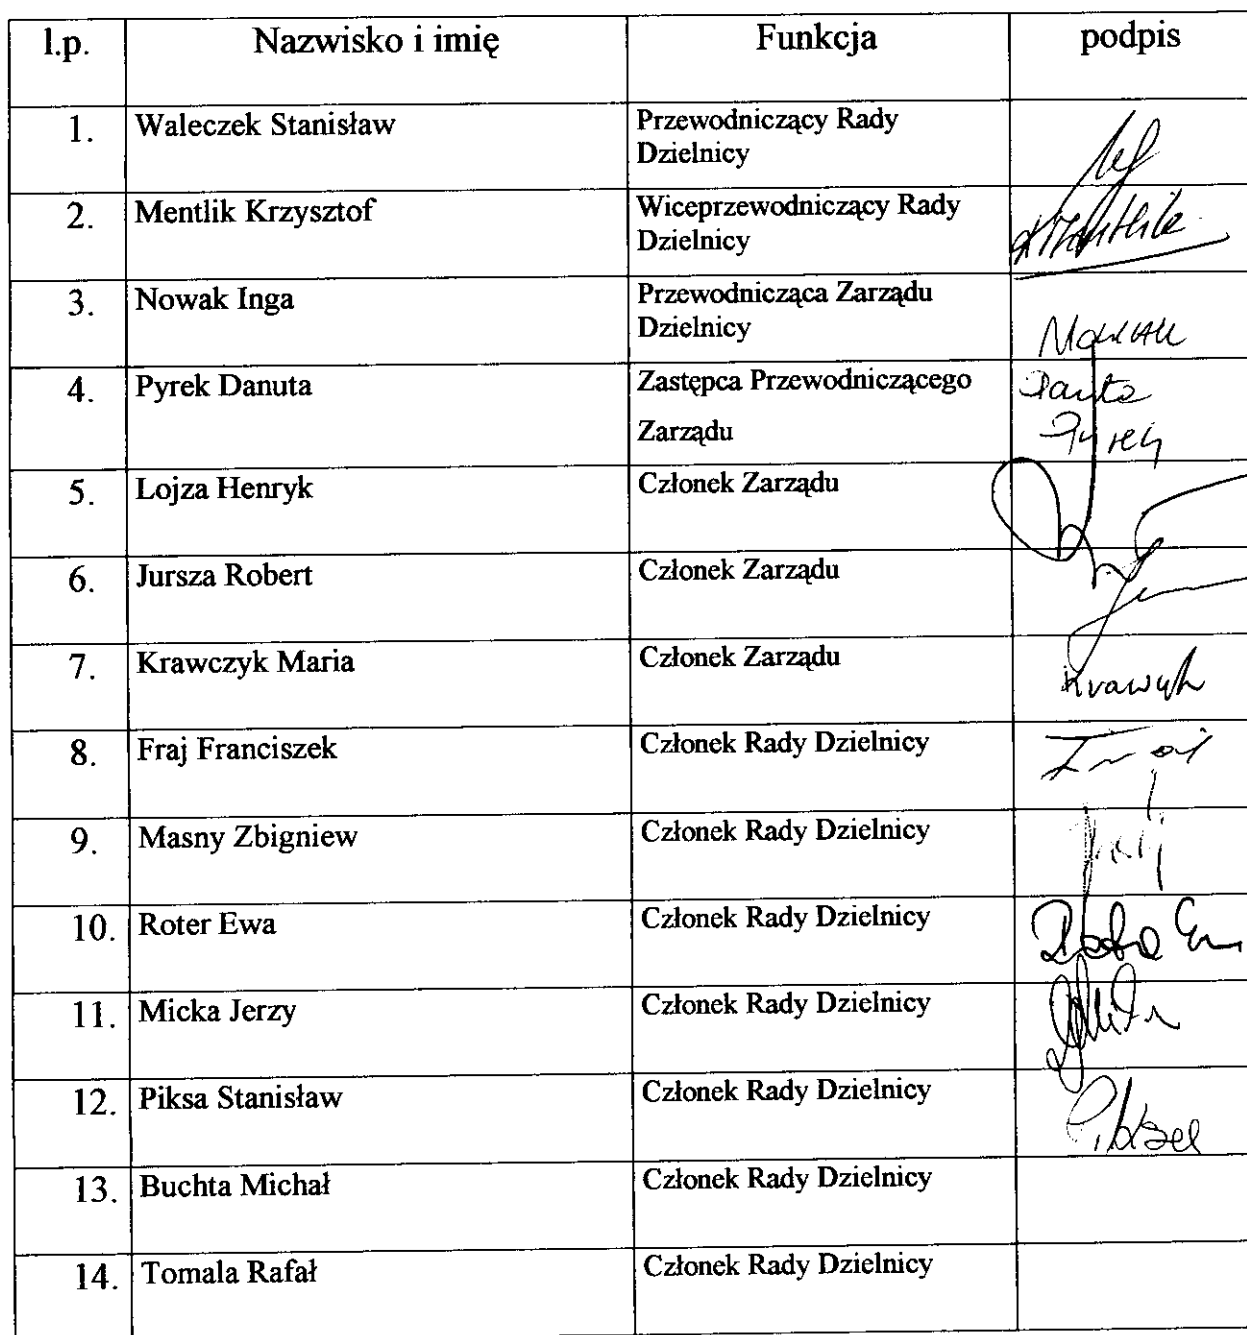 l.p. Nazwisko i imię Funkcja podpis
1. Waleczek Stanisław Przewodniczący Rady
Dzielnicy
2. Mentlik Krzysztof Wiceprzewodniczący Rady
Dzielnicy
3. Nowak Inga Przewodnicząca Zarządu
Dzielnicy
4. Pyrek Danuta Zastępca Przewodniczącego
Zarządu
5. Lojza Henryk Członek Zarządu
6. Jursza Robert Członek Zarządu
7. Krawczyk Maria Członek Zarządu
8. Fraj Franciszek Członek Rady Dzielnicy
9. Masny Zbigniew Członek Rady Dzielnicy
10. Roter Ewa Członek Rady Dzielnicy
11. Micka Jerzy Członek Rady Dzielnicy
12. Piksa Stanisław Członek Rady Dzielnicy
13. Buchta Michał Członek Rady Dzielnicy
14. Tomala Rafał Członek Rady Dzielnicy